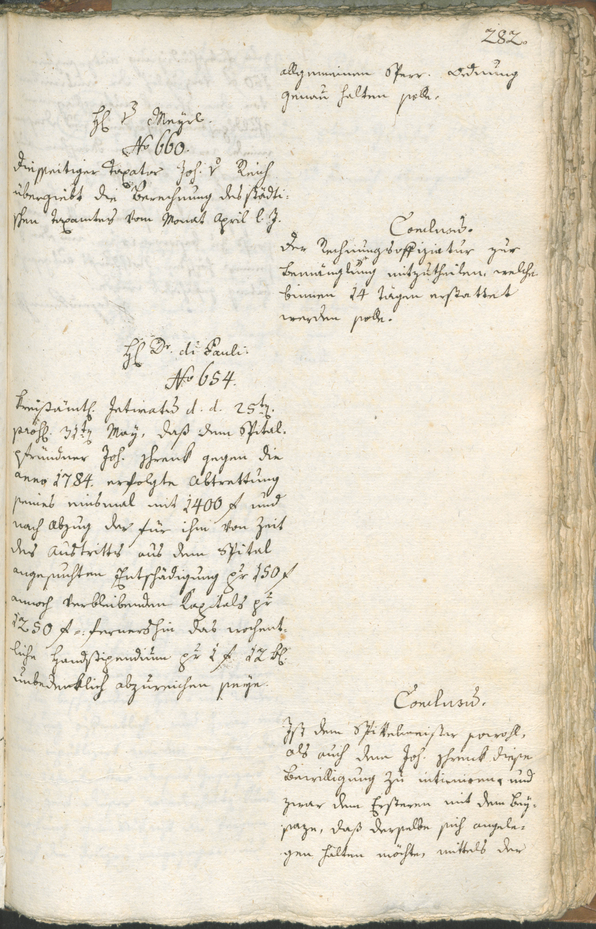 282.
allgemeinen Sperr-Ordnung
genau halten solle.
H: v Mayrl.
No 660.
Diesseitiger Taxator Joh. v Reich
übergiebt die Berechnung des städti-
schen Taxamtes vom Monat April l. J.
Conclusum.
Der Rechnungsoffiziatur zur
Bemänglung mitzutheilen, welche
binnen 14 Tägen erstattet
werden solle.
H: Dr. di Pauli.
No 654.
Kreisämtl. Intimatum d. d. 25ten
präs. 31ten May, daß dem Spital-
pfründner Joh. Schenk gegen die
anno 1784. erfolgte Abtrettung
seines einsmal mit 1400 f und
nach Abzug der für ihm von Zeit
des Austritts aus dem Spital
angesuchten Entschädigung pr 150 f
annoch verbleibenden Kapitals pr
1250 f: fernershin das wochent-
liche Handstipendium pr 1 f 12 kr.
unbedenklich abzureichen seye.
Conclusum.
Ist dem Spittelmeister sowohl,
als auch dem Joh. Schenk diese
Bewilligung zu intimiren, und
zwar dem Ersteren mit dem Bey-
saze, daß derselbe sich angele-
gen halten möchte, mittels der